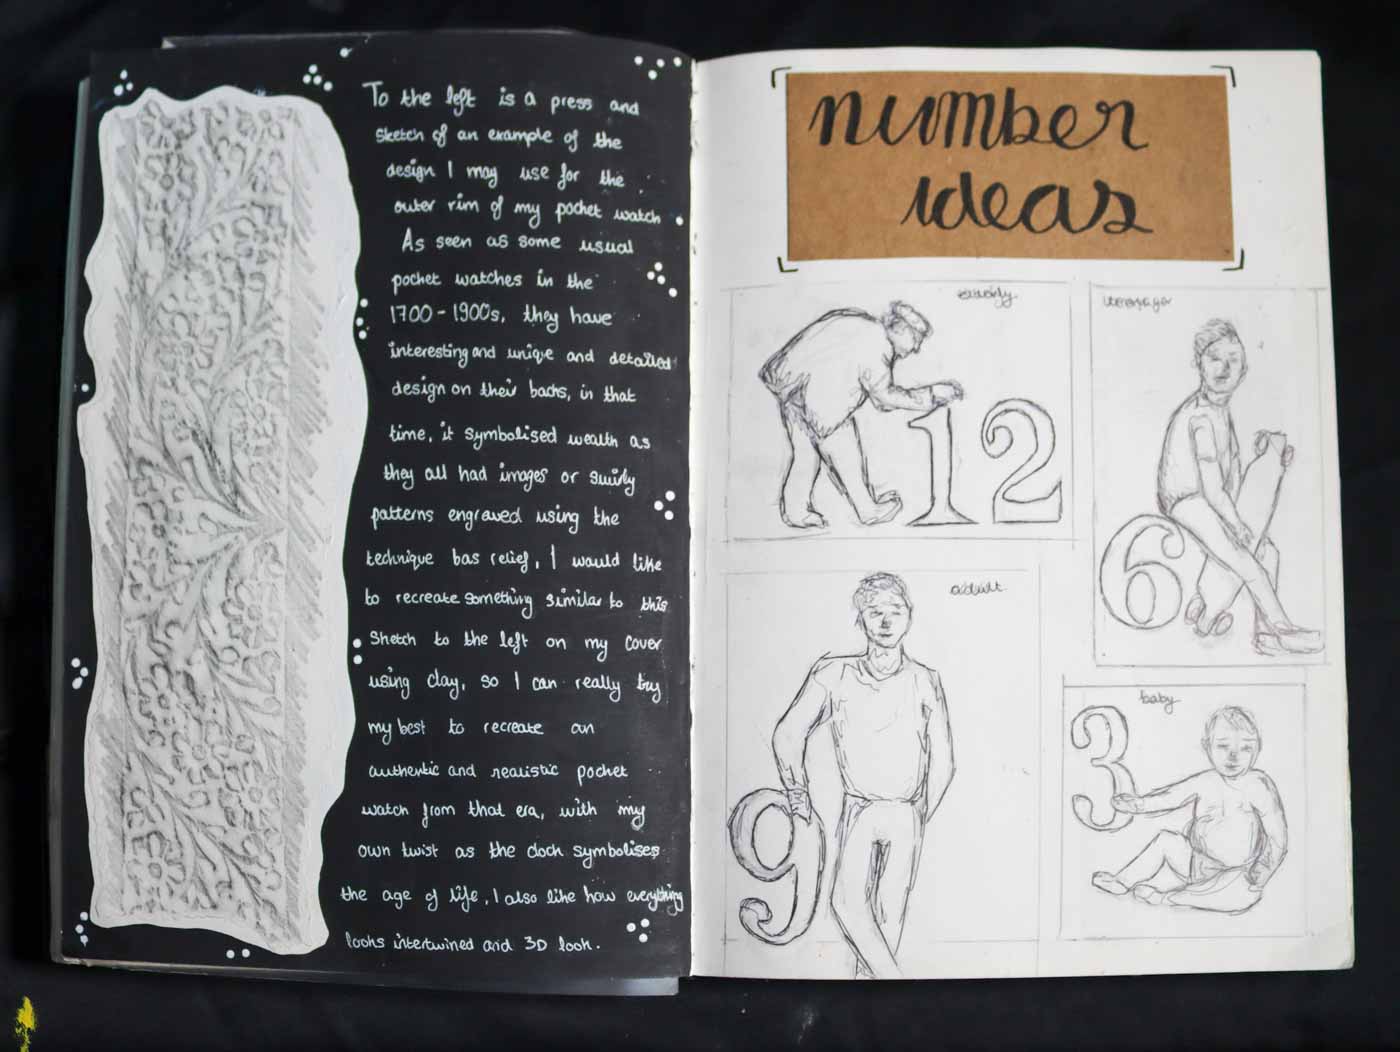 To the left is a press and
sketch of an example of the
design I may use for the
outer rim of my pocket watch
As seen as some usual
pocket watches in the
1700-1900s, they have
interesting and unique and detailed
design on their backs, in that
time, it symbolised wealth as
they all had images or swirly
patterns engraved using the
technique bas relief, I would like
to recreate something similar to this
sketch to the left on my cover
using clay, so I can really try
my best to recreate an
authentic and realistic pocket
watch from that era, with my
own twist as the clock symbolises
the age of life. I also like how everything
looks intertwined and 3D look.
number
ideas
elderly
12
teenager
6
adult
9
baby
3